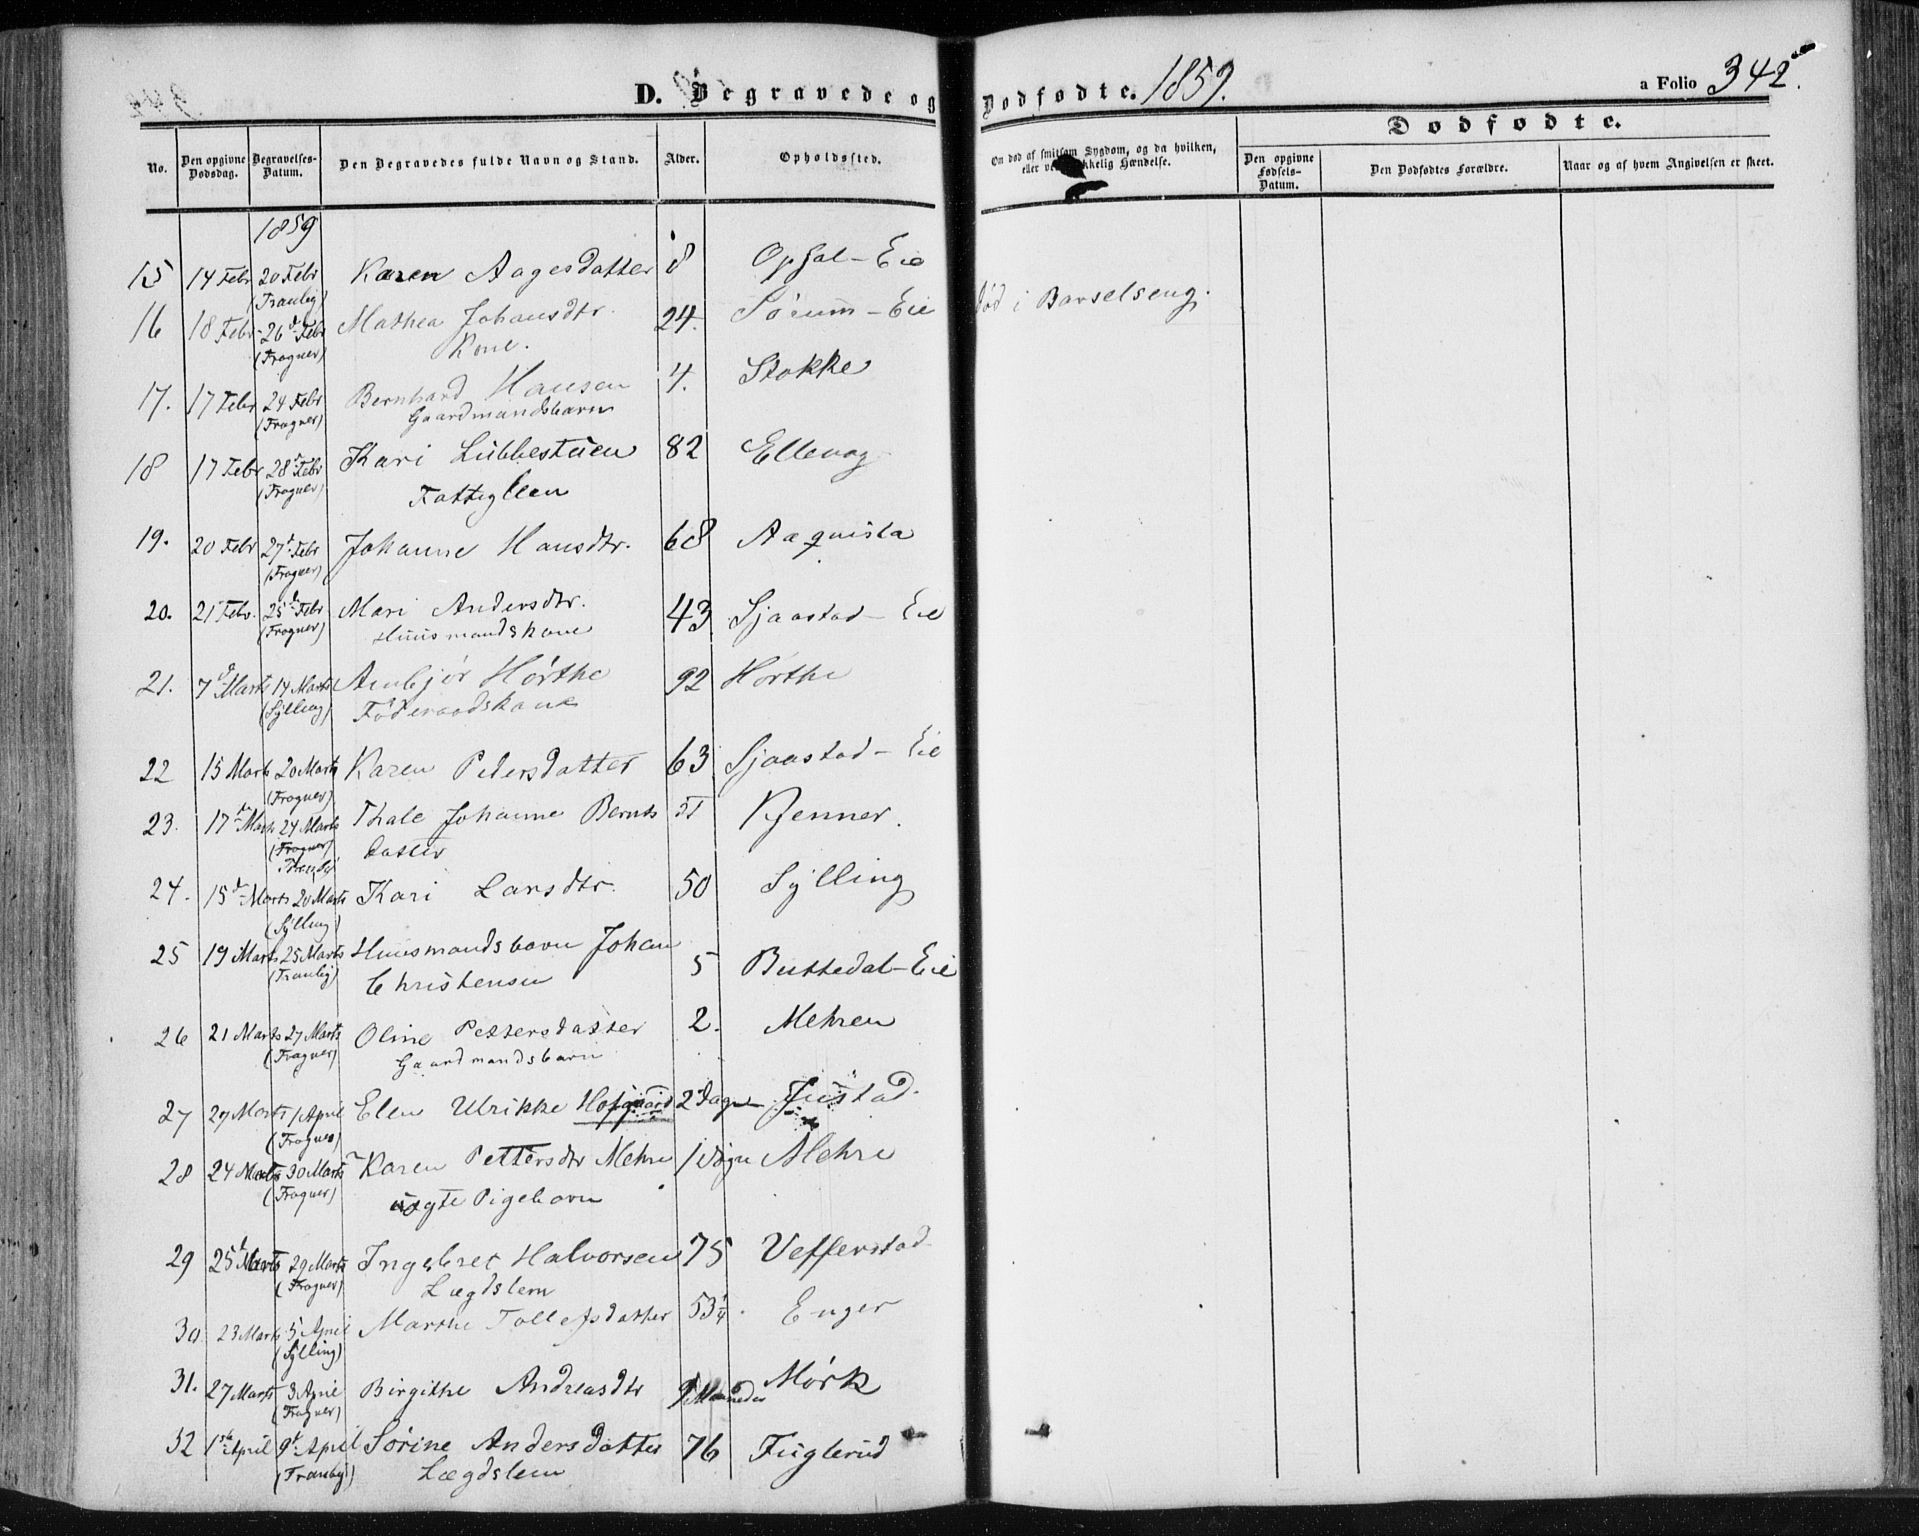 D. Begravede og Dødfødte. 1859. a Folio 342.
Dødfødte.
No. Den opgivne Dødsdag. Begravelses-Datum. Den Begravedes fulde Navn og Stand. Alder. Opholdssted. Om død af smitsom Sygdom, og da hvilken, eller ved Hændelse. Den opgivne Fødsels-Datum. Den Dødfødtes Forældre. Naar og af hvem Angivelsen er skeet.
1859
15 14 Febr 20 Febr Karen Aagesdatter 8 Opsal - Eie
(Tranbig)
16 18 Febr 26d Febr Mathea Johansdtr. 24. Sørum - Eie død i Barselseng.
(Frogner) Kone.
17. 17 Febr 24 Febr Bernhard Hansen 4. Stokke
(Frogner) Gaardmandsbarn
18 17 Febr 28d Febr Kari Lubbestuen 82 Ellevog
(Frogner) Fattiglem
19. 20 Febr 27d Febr Johanne Hansdtr. 68 Aaqvisla
(Frogner)
20. 21 Febr. 25d Febr Mari Andersdtr. 43 Sjaastad - Eie
(Frogner) Huusmandskone
21. 7d Marts 14 Marts Anbjør Hørthe 92 Hørthe
(Sÿlling) Føderaadskone
22 15 Marts 20 Marts Karen Pedersdatter 63 Sjaastad - Eie
(Frogner)
23. 17de Marts 24 Marts Thale Johanne Bernts Kjenner.
(Frogner) datter
Tranbÿ
24. 15d Marts 20 Marts Kari Larsdtr. 50 Sÿlling
(Sÿlling)
25 19 Marts 25 Marts Huusmandsbarn Johan
(Tranbig) Christensen 5 Buttedal - Eie
26 21 Marts 27 Marts Oline Pettersdatter 2. Mehren
(Frogner) Gaardmandsbarn
27 29 Marts 1 April Elen Ulrikke Hofgaard 2 Dage Justad.
(Frogner)
28 24 Marts 30 Marts Karen Pettersdtr Mehre 1 Døgn Mehre
(Frogner) uægte Pigebarn
29 25d Marts 29 Marts Ingebret Halvorsen 75 Vefferstad
(Frogner) Lægdslem
30 23 Marts 5 April Marthe Tollefsdatter 53¼. Enger
(Sÿlling)
31. 27 Marts 3 April Birgithe Andreasdtr 9 Maaneder Mørk
(Frogner)
32 1ste April 9d April Sørine Andersdatter 76 Fuglerud
(Tranbÿ) Lægdslem